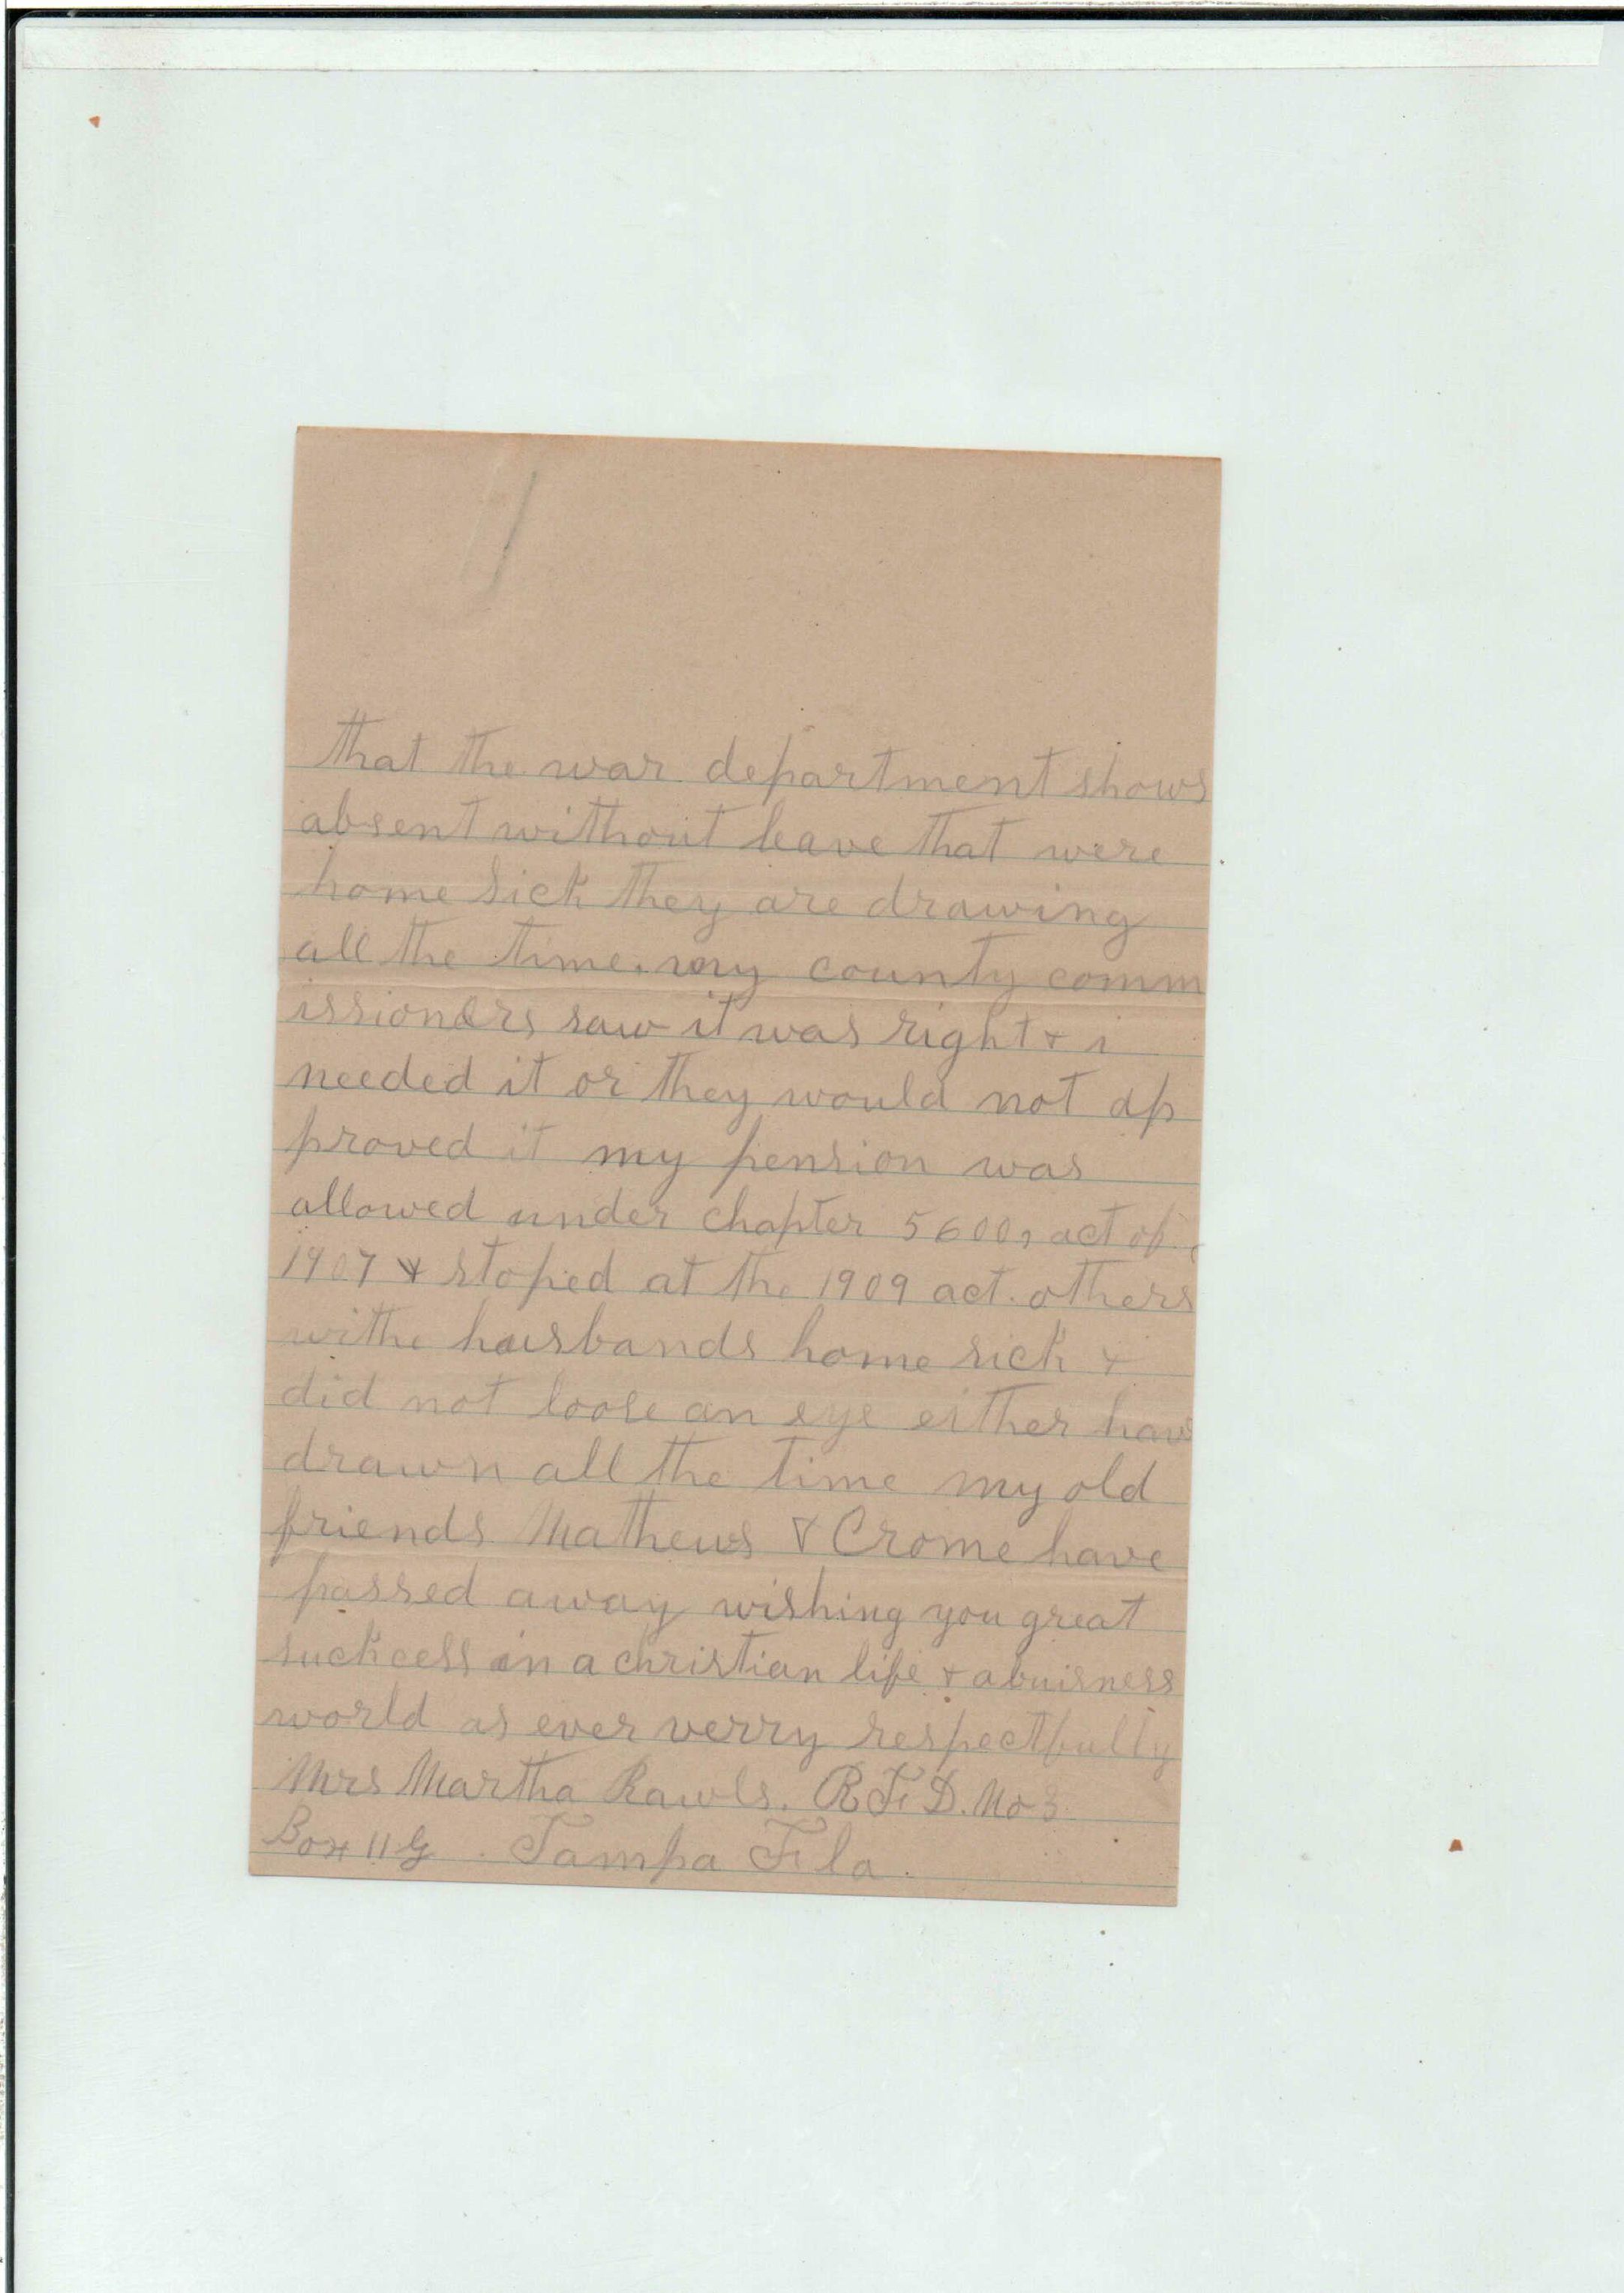 that the war department shows
absent without leave that were
home sick they are drawing
all the time. my county comm
issioners saw it was right & i
needed it or they would not ap
proved it my pension was
allowed under chapter 5600, act of
1907 & stoped at the 1909 act. others
withe husbands home sick &
did not loose an eye either have
drawn all the time my old
friends Mathews & Crome have
passed away wishing you great
suckcess in a christian life & a buisness
world as ever verry respectfully
Mrs Martha Rawls. R F D. No 3
Box 11 G. Tampa Fla.